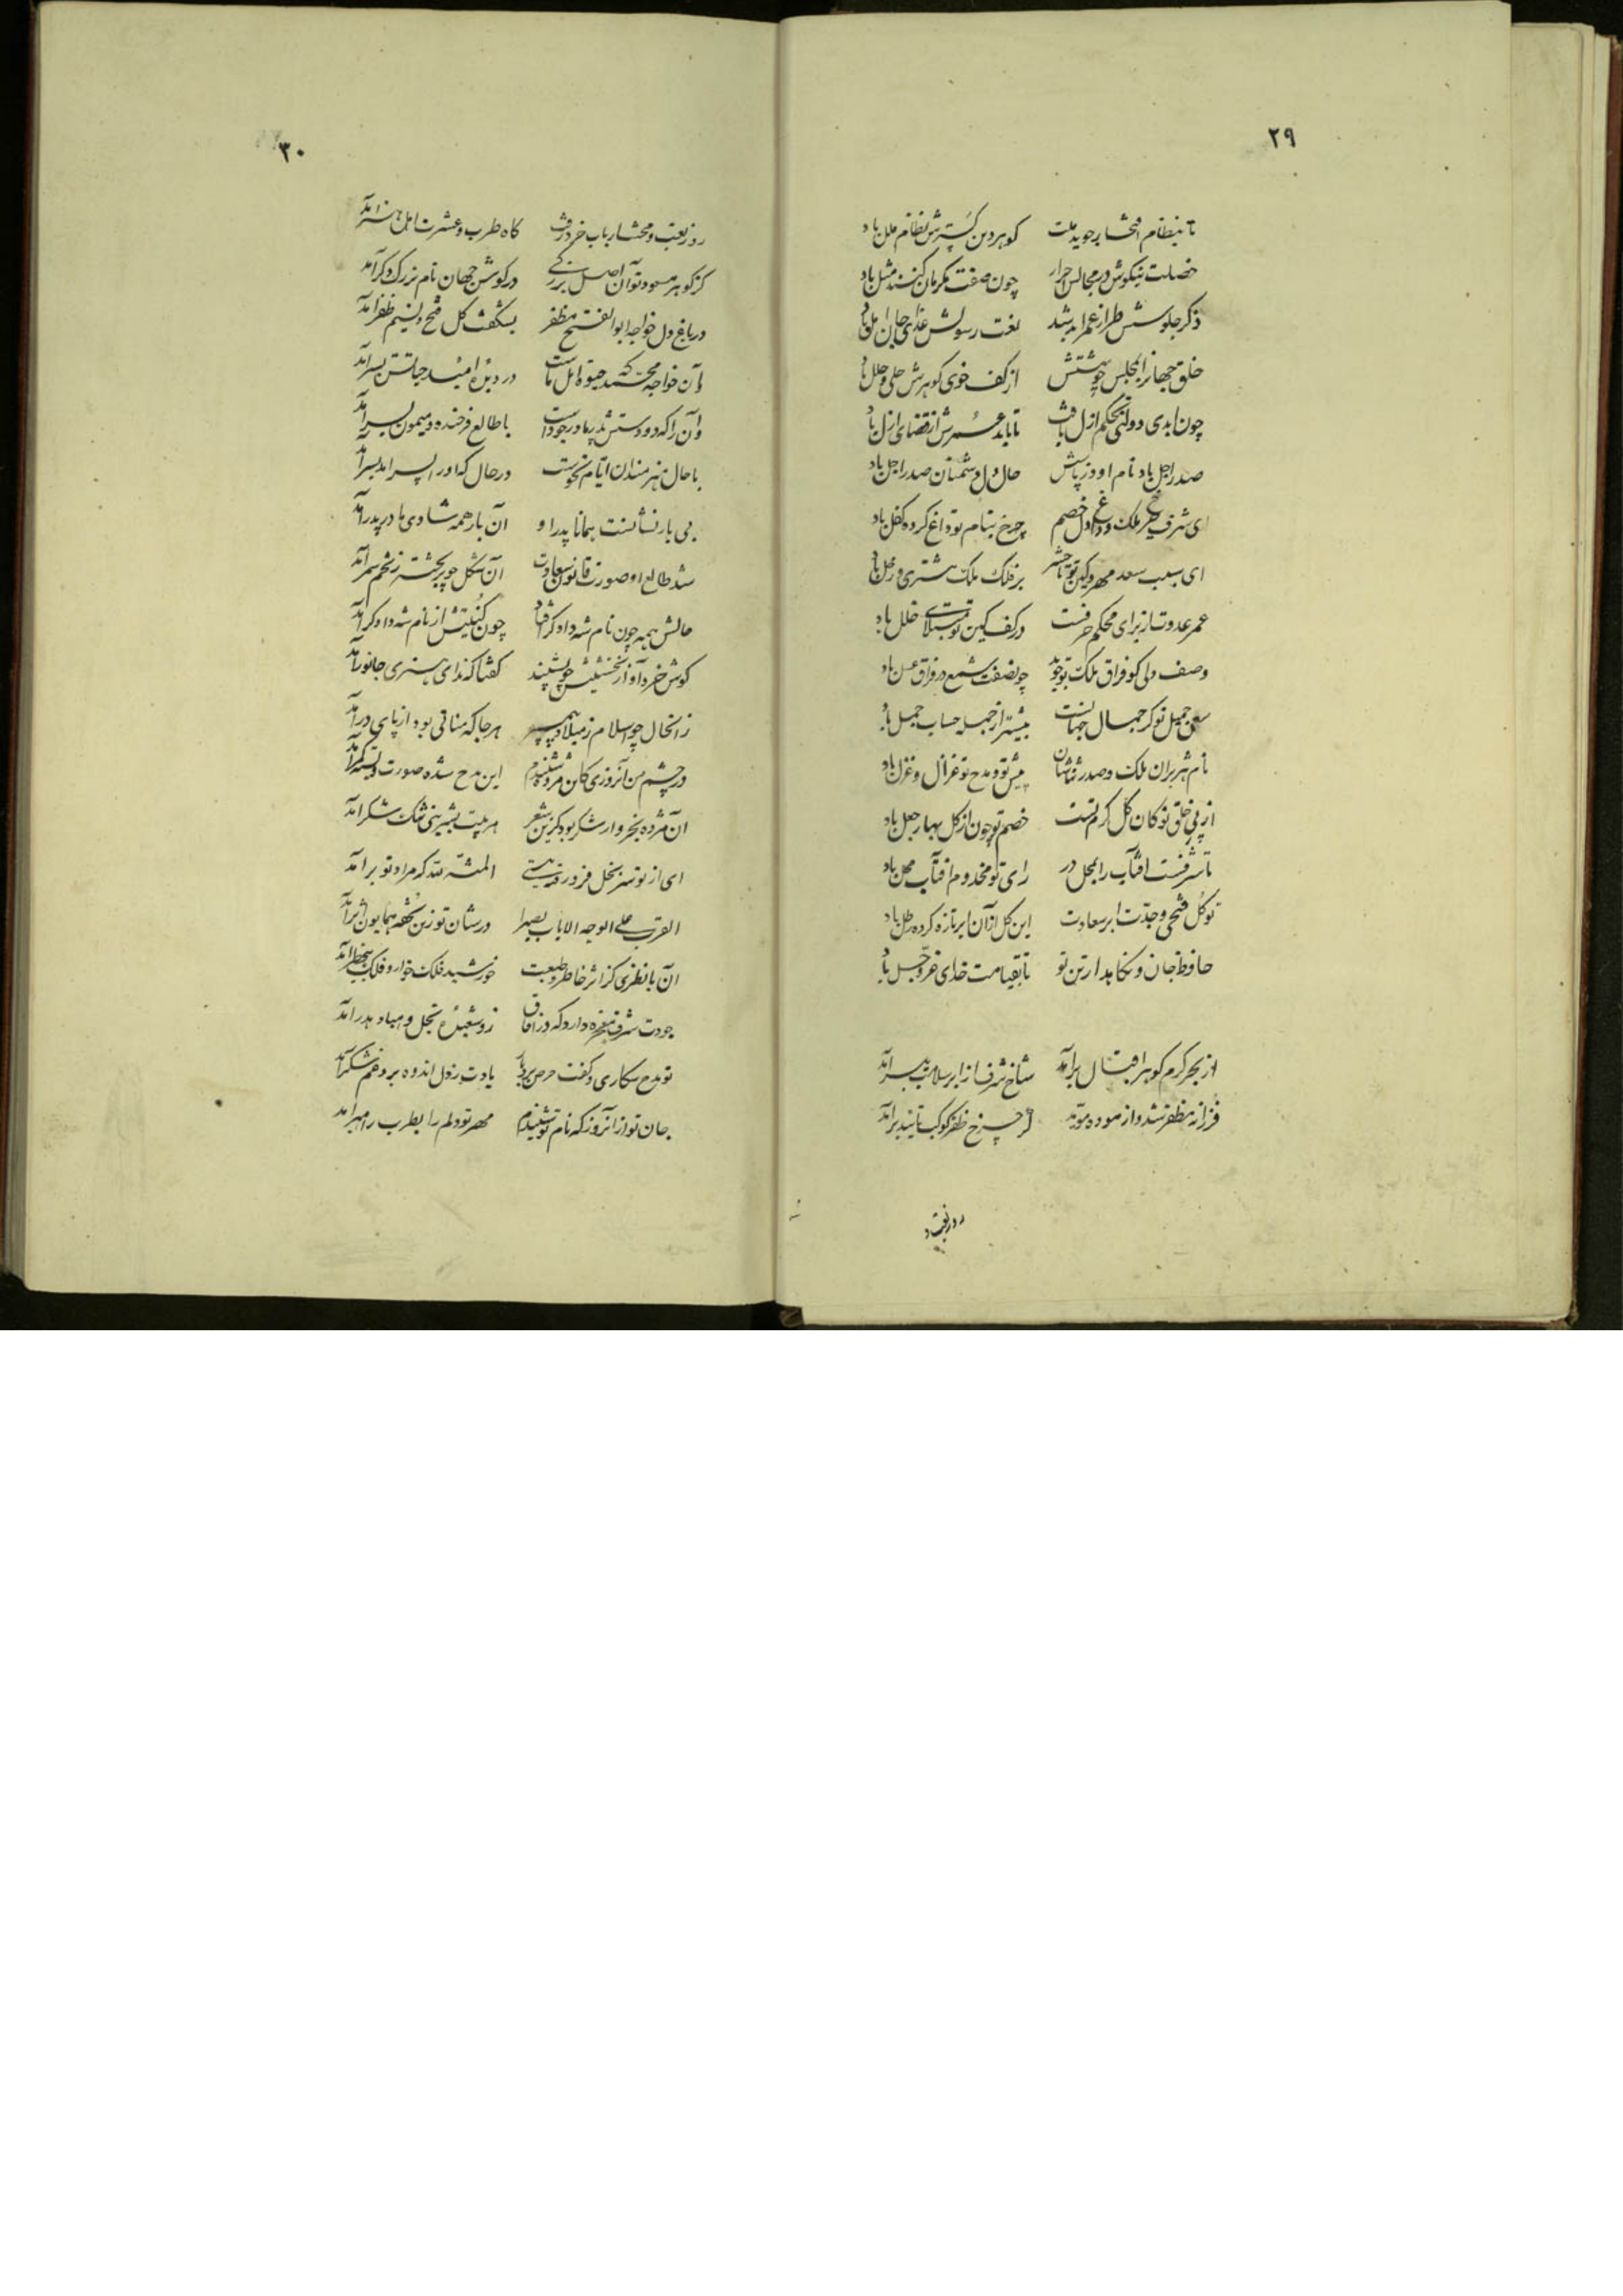 ٢٩
تا بنظام افتخار جوید ملت کوهر دین کسترش نظام ملل باد
خصلت نیکوش در مجالس احرار چون صفت مکرمان کنند مثل باد
ذکر جلوسش طراز عمر ابد شد لغت رسولش غذای جان امل باد
خلق جهانرا بمجلس چو بهشتش از کف خوی کوهرش حلی و حلل باد
چون ابدی دولتی بحکم ازل یافت تا بابد عمرش از قضای ازل باد
صدر اجل باد نام او وز پاسش حال دل دشمنان صدر اجل باد
ای شرف ملک و داغ دل خصم چرخ بنام تو داغ کرده کفل باد
ای سبب سعد مهر و کین تو تا حشر بر فلک ملک مشتری و زحل باد
عمر عدوت از برای محکم حرفست در کف کین تو مبتلای خلل باد
وصف ولی کو فراق ملک تو جوید چو نصفت شمع در فراق عسل باد
سعی جمیل تو کر جمال جهانست بیشتر از جمله حساب جمل باد
نام هژبران ملک و صدر نشان پیش تو و مدح تو غزال و غزل باد
از پی خلق تو کان کل کرم تست خصم تو چون از کل بهار جعل باد
تا شرفست افتاب را بحمل در رای تو مخدوم افتاب محل باد
تو کل فتحی و جدّت ابر سعادت این کل از آن ابر تازه کرده طلل باد
حافظ جان و نکاهدار تن تو تا بقیامت خدای عزّ و جل باد
از بحر کرم کوهر اقبال برآمد شاخ شرف از ابر سلامت ببر آمد
فرزانه مظفر شد و از موده مؤید کز چرخ ظفر کوکب تائید برآمد
روز تعب و
٣٠
روز تعب و محنت ارباب خرد رفت کاه طرب و عشرت اهل هنر آمد
کز کوهر مسعود تو آن اصل بزرگی در کوش جهان نام بزرک دکر آمد
در باغ دل خواجه ابوالفتح مظفر بشکفت کل فتح و نسیم ظفر آمد
وآن خواجه محمد که حیوة امل ماست در دیدهٔ امید حیاتش بسر آمد
وآن را که دو دستش پدر و مادر جود است با طالع فرخنده و میمون پسر آمد
با حال هنرمندان ایام نکو ست در حال که او را پسر آمد بسر آمد
بی بار نشانست همانا پدر او آن بار همه شادی مادر پدر آمد
شد طالع او صورت قانون سعادت آن شکل چو پر بحشتر ز نخم سمر آمد
حالش همه چون نام شه دادکر افتاد چون کُنیتش از نام شه دادکر آمد
کوش خرد آواز نخستینش چو بشنید کفتا که ندای هنری جانور آمد
زانحال چو اسلام ز میلاد پیمبر هر جا که مناتی بود از پای در آمد
در چشم من آنروزی کاین مژده شنیدم این مدح شده صورت و بسته کمر آمد
آن مژده بخروار شکر بود کزین شعر هر بیت بشیرینی تنک شکر آمد
ای از تو سر بخل فرو رفته بپستی المنّة لله که مراد تو برآمد
القرب علی الوجه الاباب بصیرا در شان تو زین تحفه همایون اثر آمد
آن با نظری کز اثر خاطر و طبعت خورشید فلک خوار و فلک بیخطر آمد
جودت شرف معجزه دارد که در آفاق زو شعبدهٔ بخل و مهیا هدر آمد
تو مدح شکاری و کفت حرص بر باد یادت ز دل انده بر و غم شکر آمد
جان تو از آنروز که نام تو شنیدم مهر تو دلم را بطرب راهبر آمد